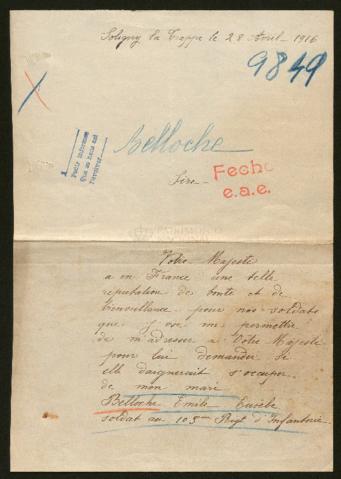 Soligny la Trappe le 28 Avril 1916
9849
Belloche
Pedir informes
Fecho
e.a.e.
Sire
PATRIMONIO
Votre Majesté
a en France une telle
reputation de bonté et de
bienveillance pour nos soldats
que j'ose me permettre
de m'adresser a Votre Majesté
pour lui demander si
elle daignerait s'occuper
de mon mari
Belloche Emile Eusèbe
soldat au 103me Regt d'Infanterie